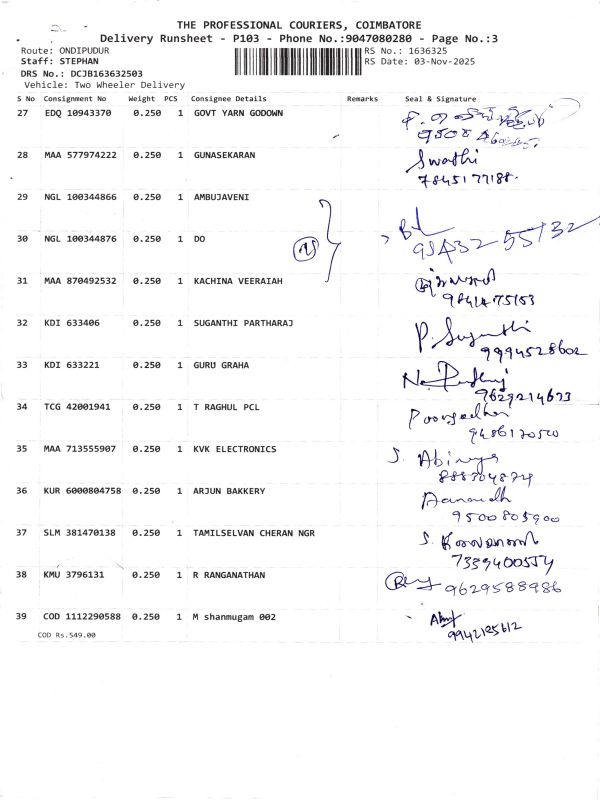 THE PROFESSIONAL COURIERS, COIMBATORE
Delivery Runsheet - P103 - Phone No.:9047080280 - Page No.:3
Route: ONDIPUDUR RS No.: 1636325
Staff: STEPHAN RS Date: 03-Nov-2025
DRS No.: DCJB163632503
Vehicle: Two Wheeler Delivery
S No Consignment No Weight PCS Consignee Details Remarks Seal & Signature
27 EDQ 10943370 0.250 1 GOVT YARN GODOWN
28 MAA 577974222 0.250 1 GUNASEKARAN Swathi
7845177188.
29 NGL 100344866 0.250 1 AMBUJAVENI
30 NGL 100344876 0.250 1 DO
31 MAA 870492532 0.250 1 KACHINA VEERAIAH
32 KDI 633406 0.250 1 SUGANTHI PARTHARAJ P. Suganthi
9994528602
33 KDI 633221 0.250 1 GURU GRAHA
9629214673
34 TCG 42001941 0.250 1 T RAGHUL PCL
35 MAA 713555907 0.250 1 KVK ELECTRONICS S. Abinaya
36 KUR 6000804758 0.250 1 ARJUN BAKKERY
9500805900
37 SLM 381470138 0.250 1 TAMILSELVAN CHERAN NGR
7339400554
38 KMU 3796131 0.250 1 R RANGANATHAN 9629588986
39 COD 1112290588 0.250 1 M shanmugam 002
9942125612
COD Rs.549.00